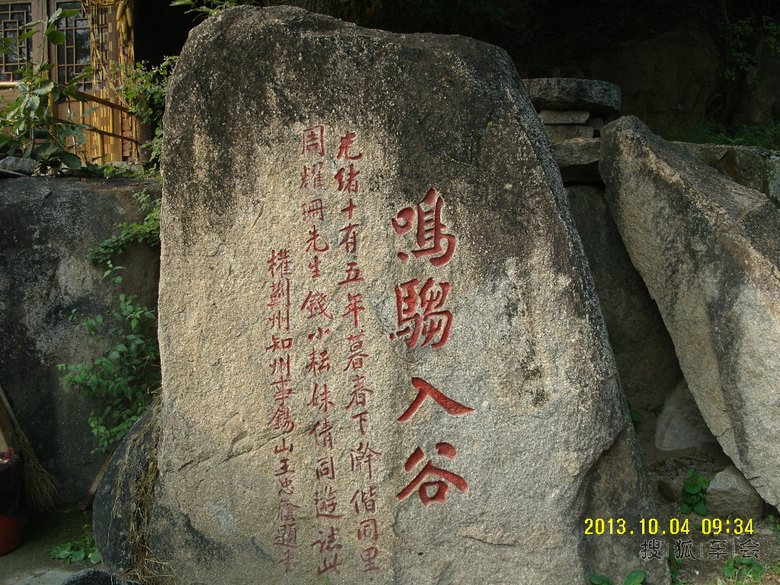 鳴騶入谷
光緒十有五年暮春下澣偕同里
周耀珊先生錢小耘妹倩同遊誌此
權薊州知州事錫山王忠蔭題
2013.10.04 09:34
搜狐车会